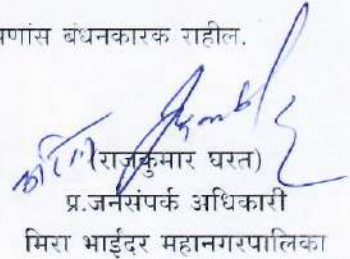 पणांस बंधनकारक राहील.
(राजकुमार घरत)
प्र.जनसंपर्क अधिकारी
मिरा भाईंदर महानगरपालिका